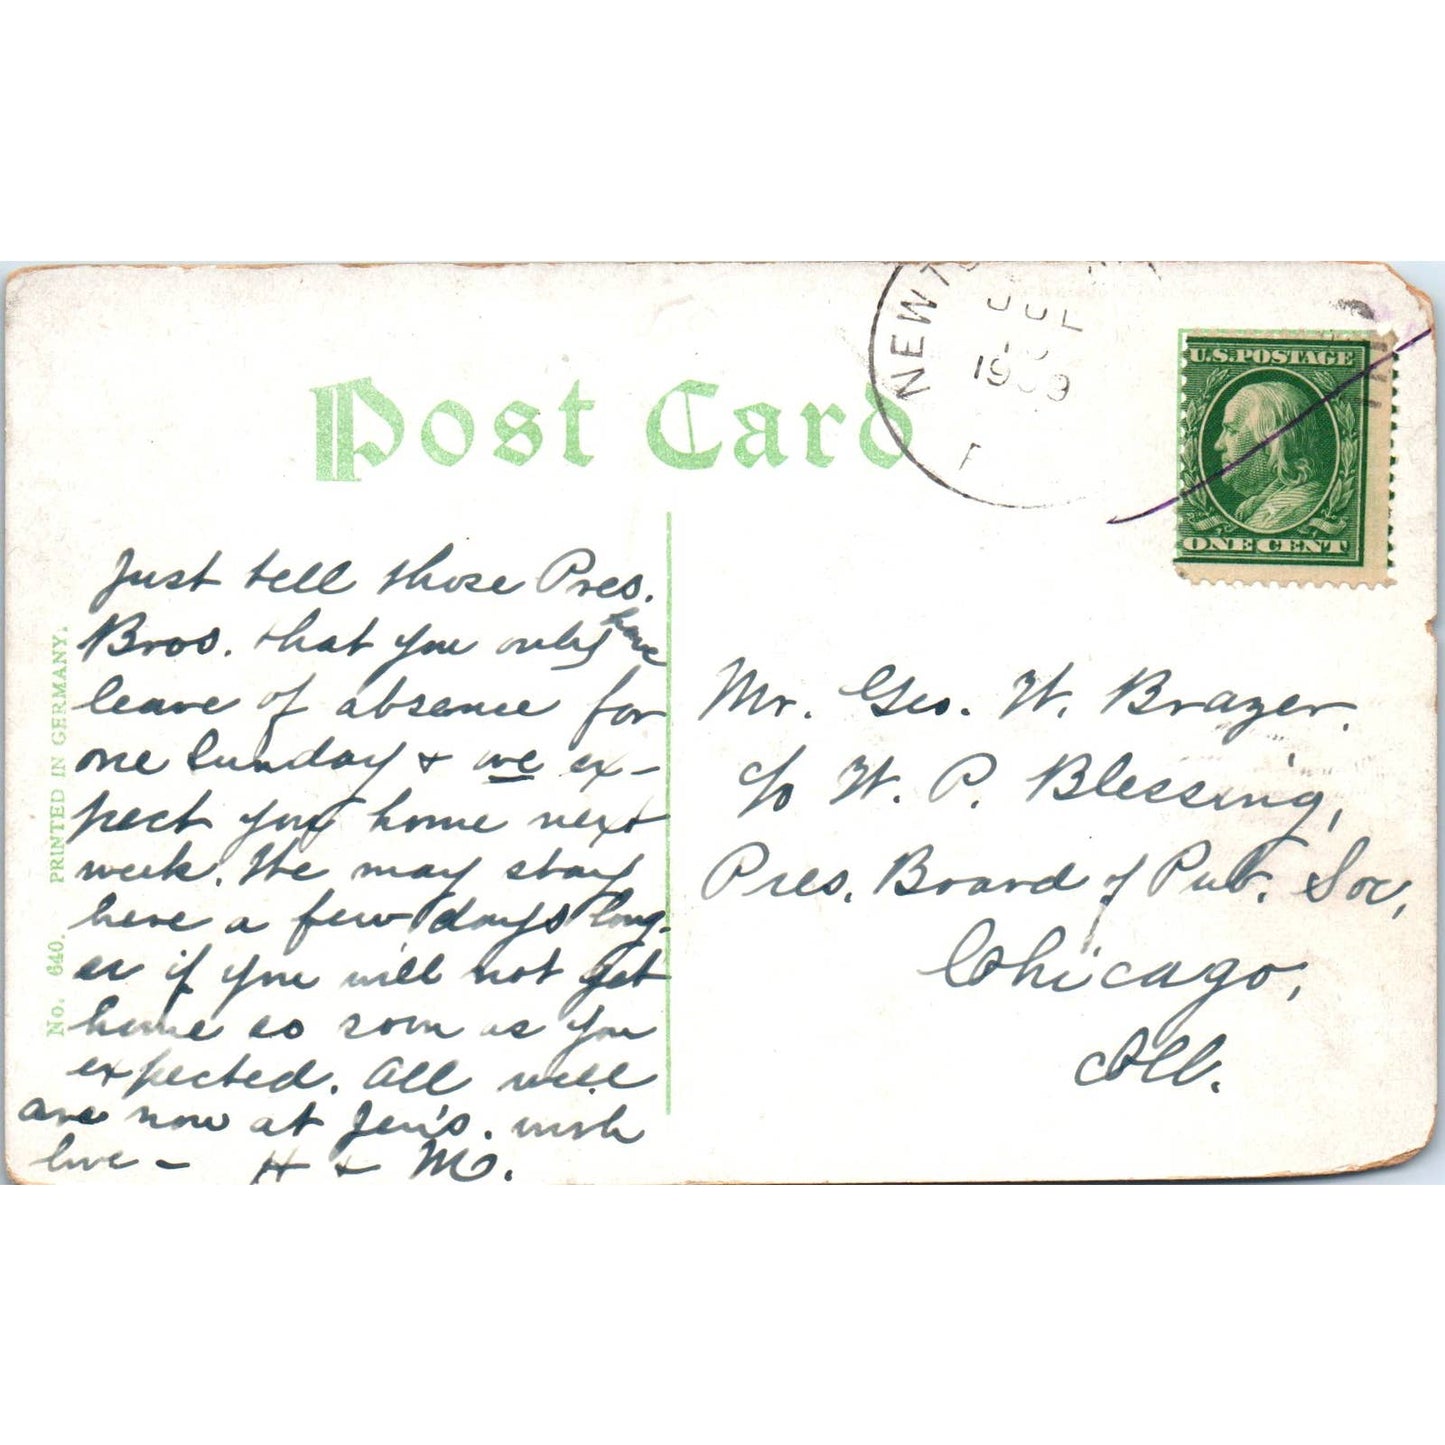 Post Card
NEWT
JUL
1909
U.S. POSTAGE
ONE CENT
No. 640. PRINTED IN GERMANY.
Just tell those Pres.
Bros. that you only have
leave of absence for
one Sunday & we ex-
pect you home next
week. We may stay
here a few days long-
er if you will not get
home so soon as you
expected. All well
are now at Jen's. with
love - H & M.
Mr. Geo. W. Brazer.
c/o W. P. Blessing,
Pres. Board of Pub. Soc,
Chicago,
Ill.